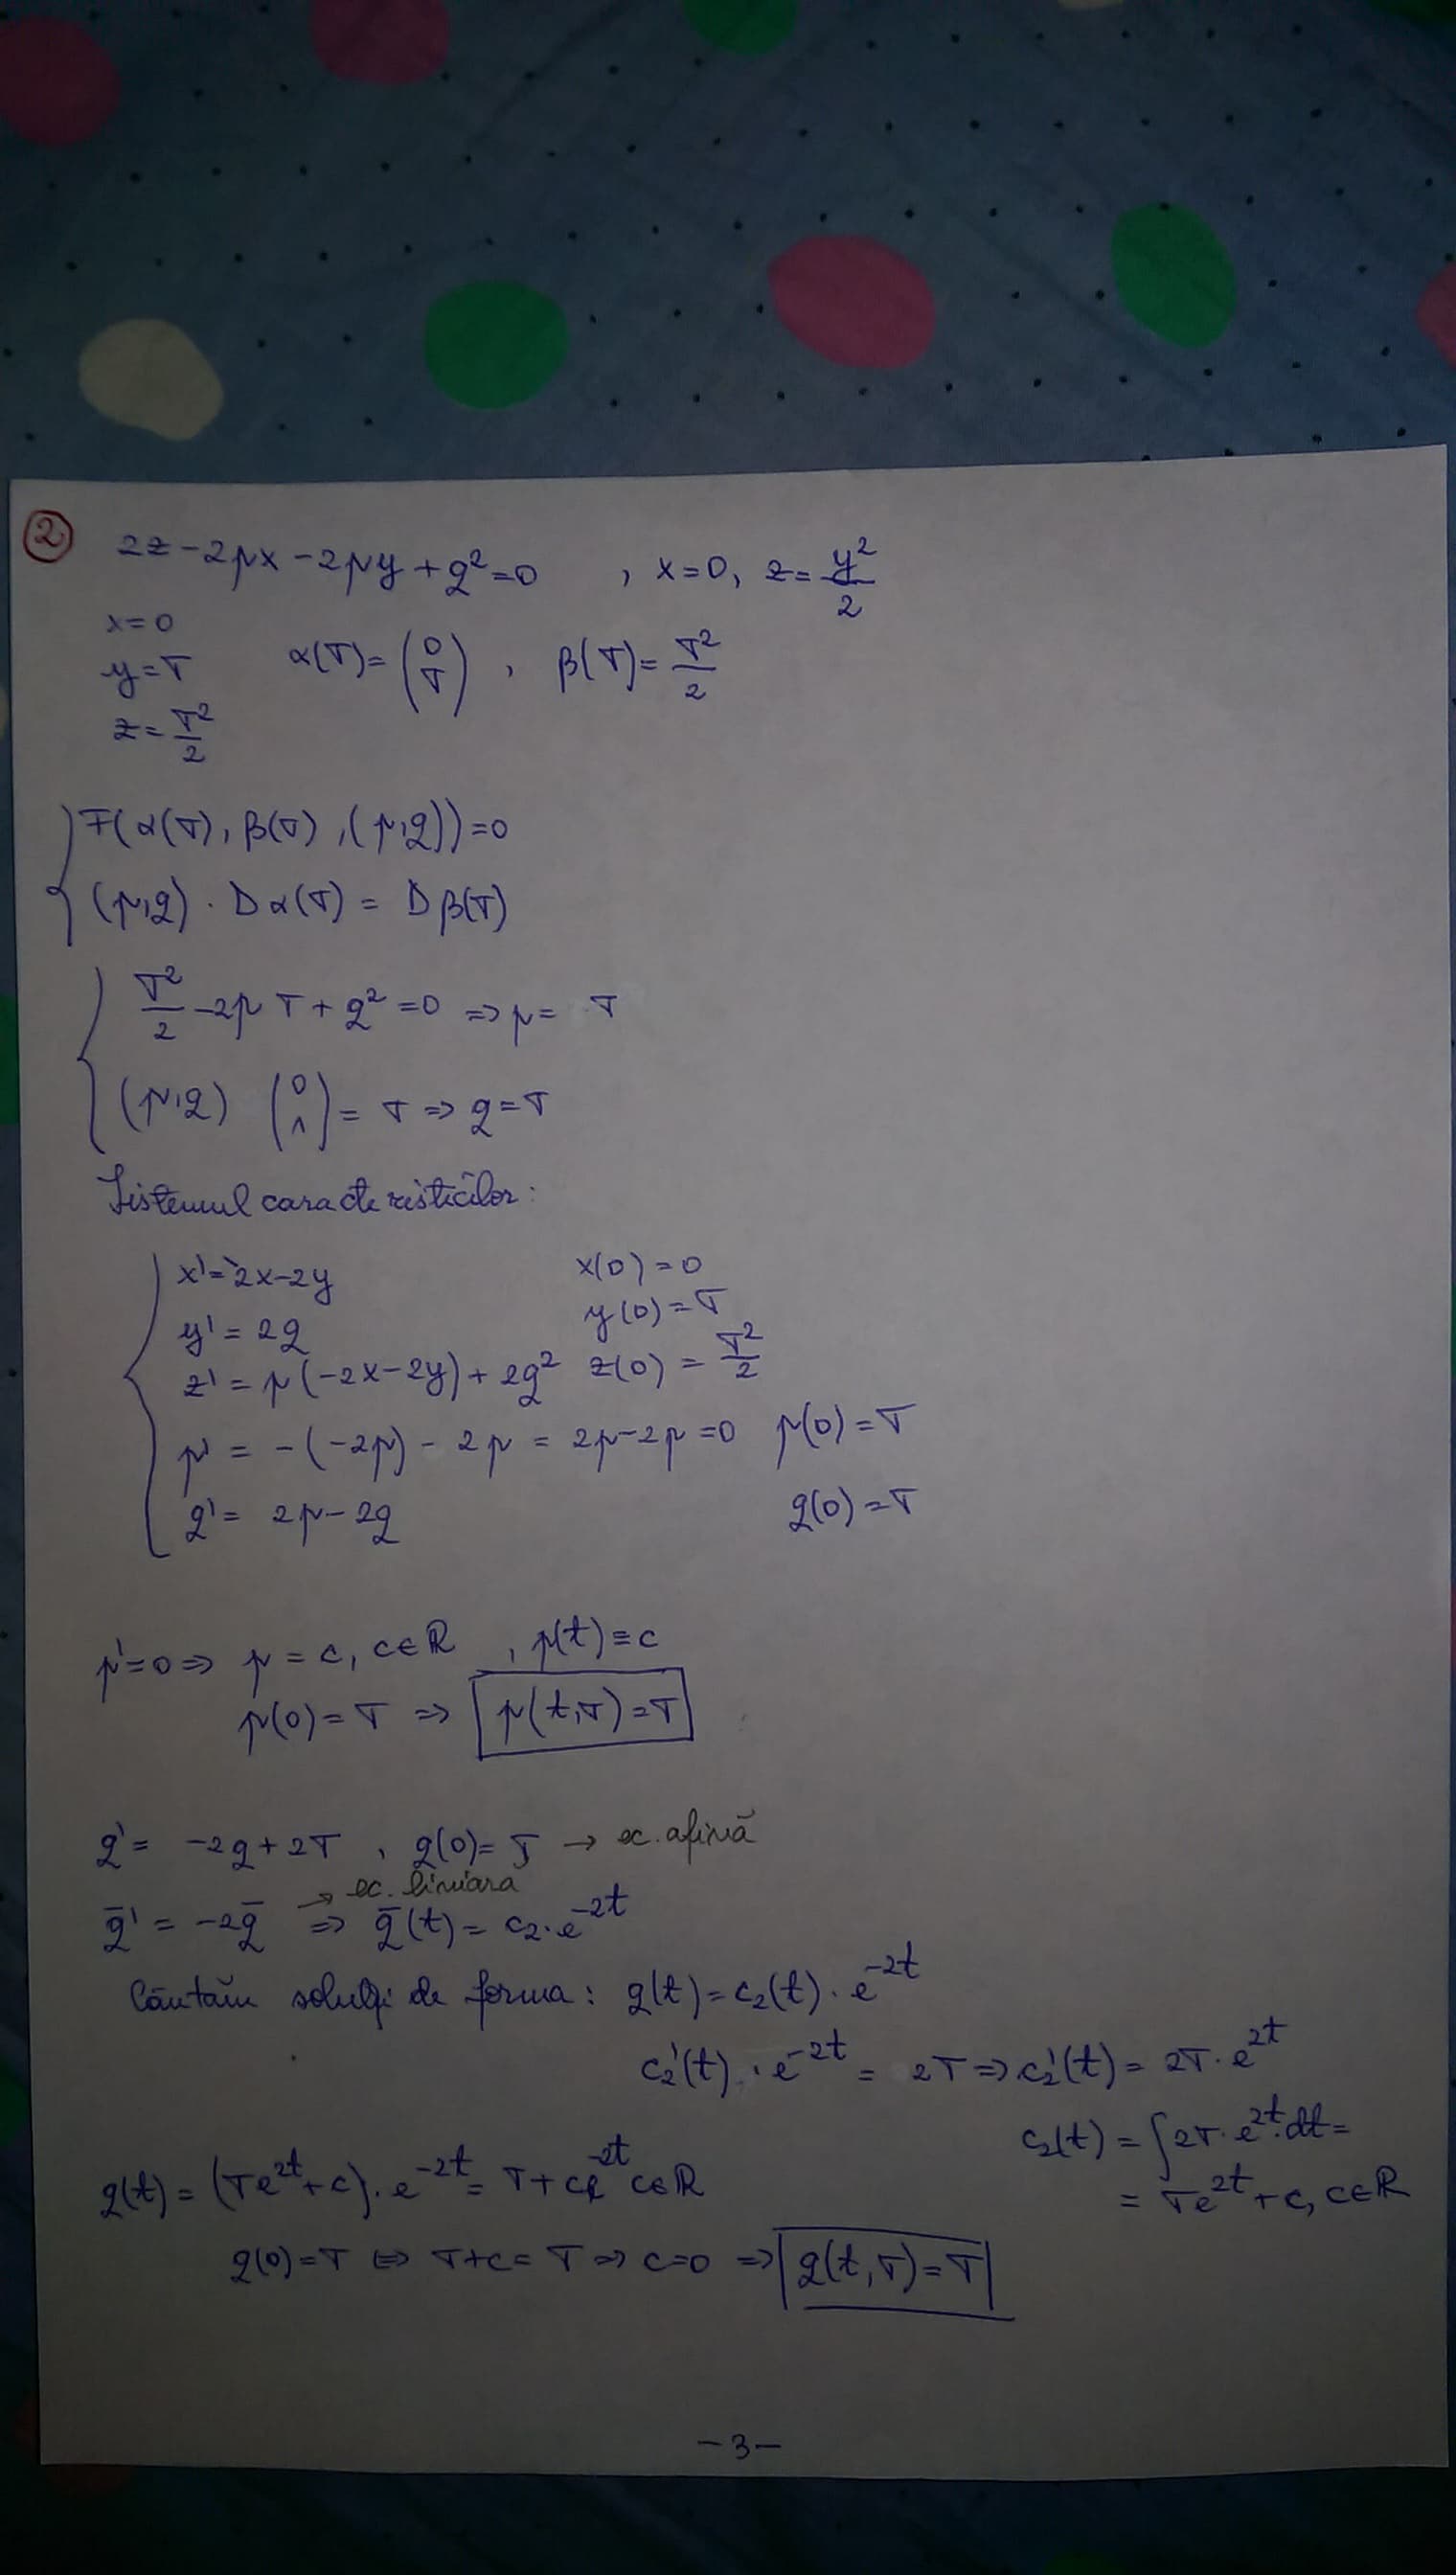 2
2z - 2px - 2py + q² = 0 , x=0, z = y²/2
x=0
y=T α(T) = (0 T) , β(T) = T²/2
z = T²/2
F(α(T), β(T), (p,q)) = 0
(p,q) · Dα(T) = Dβ(T)
T²/2 - 2pT + q² = 0 => p = T
(p,q) (0 1) = T => q = T
Sistemul caracteristicilor:
x' = -2x-2y x(0) = 0
y' = 2q y(0) = T
z' = p(-2x-2y) + 2q² z(0) = T²/2
p' = -(-2p) - 2p = 2p-2p = 0 p(0) = T
q' = 2p - 2q q(0) = T
p'=0 => p = c, c∈ℝ , p(t) ≡ c
p(0) = T => p(t,T) = T
q' = -2q + 2T , q(0) = T → ec. afină
→ ec. liniara
q̄' = -2q̄ => q̄(t) = c₂·e^-2t
Căutăm soluții de forma: q(t) = c₂(t) · e^-2t
c₂'(t) · e^-2t = 2T => c₂'(t) = 2T · e^2t
c₂(t) = ∫2T · e^2t · dt =
= Te^2t + c, c∈ℝ
q(t) = (Te^2t + c) · e^-2t = T + ce^-2t c∈ℝ
q(0) = T ⇔ T+c = T => c=0 => q(t,T) = T
-3-